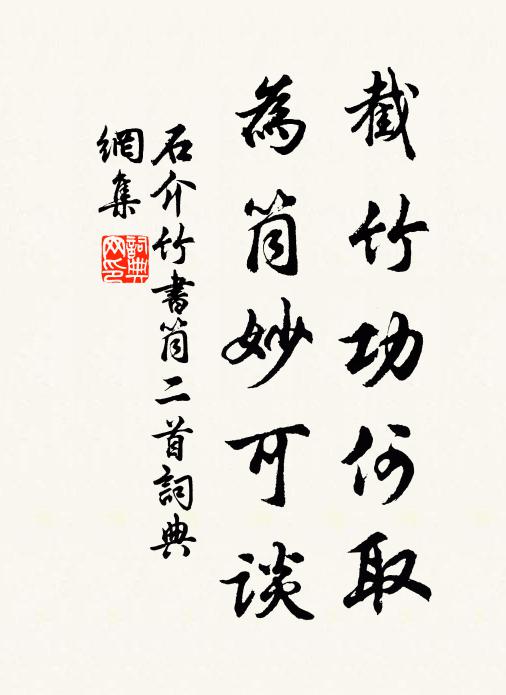 截竹功何取
為筒妙可談
石介竹書筒二首詞典
網集
詞典
网印